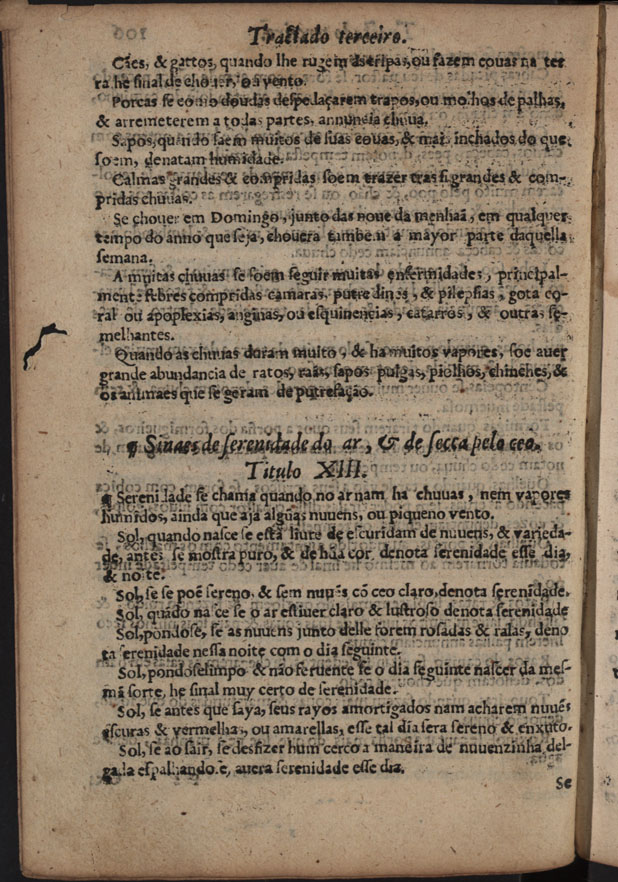 Tractado terceiro.
Cães, & gattos, quando lhe rugem as tripas, ou fazem couas na ter
ra he sinal de chouer, ou vento.
Porcas se como doudas despedaçarem trapos, ou molhos de palhas,
& arremeterem a todas partes, annuncia chuua.
Sapos, quando saem muitos de suas couas, & mais inchados do que
soem, denatam humidade.
Calmas grandes & compridas soem trazer tras si grandes & com-
pridas chuuas.
Se chouer em Domingo, junto das noue da menhaã, em qualquer
tempo do anno que seja, chouera tambem a mayor parte daquella
semana.
A muitas chuuas se soem seguir muitas enfermidades, principal-
mente febres compridas camaras, putredines, & pilepsias, gota co-
ral ou apoplexias, anginas, ou esquinencias, catarros, & outras se-
melhantes.
Quando as chuuas duram muito, & ha muitos vapores, soe auer
grande abundancia de ratos, raãs, sapos pulgas, piolhos, chinches, &
os animaes que se geram de putrefação.
¶ Sinaes de serenidade do ar, & de secca pelo ceo.
Titulo XIII.
¶ Serenidade se chama quando no ar nam ha chuuas, nem vapores
humidos, ainda que aja algũas nuuens, ou piqueno vento.
Sol, quando nasce se está liure de escuridam de nuuens, & varieda-
de, antes se mostra puro, & de hũa cor, denota serenidade esse dia,
& noite.
Sol, se se poẽ sereno, & sem nuuẽs cõ ceo claro, denota serenidade.
Sol, quãdo nasce se o ar estiuer claro & lustroso denota serenidade
Sol, pondose, se as nuuens junto delle forem rosadas & ralas, deno
ta serenidade nessa noite com o dia seguinte.
Sol, pondose limpo & não feruente se o dia seguinte nascer da mes-
mã sorte, he sinal muy certo de serenidade.
Sol, se antes que saya, seus rayos amortigados nam acharem nuuẽs
escuras & vermelhas, ou amarellas, esse tal dia sera sereno & enxuto.
Sol, se ao sair, se desfizer hum cerco a maneira de nuuenzinha del-
gada espalhandose, auera serenidade esse dia.
Se